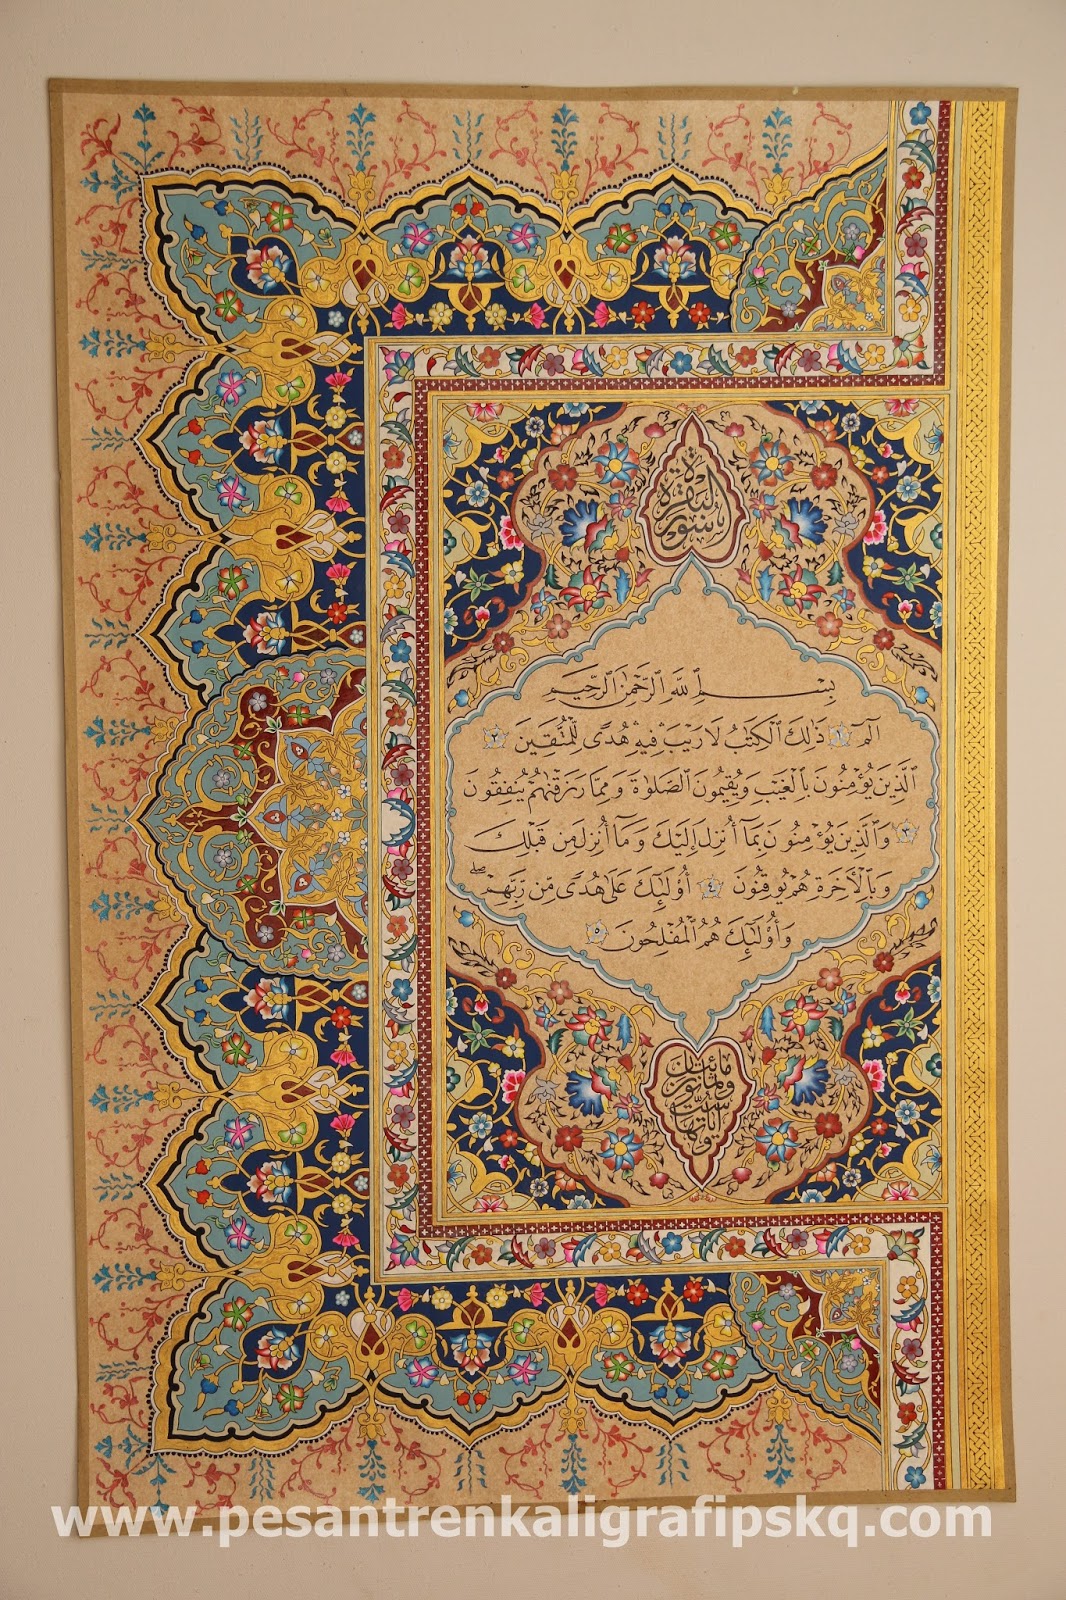 سورة البقرة
بِسْمِ ٱللَّهِ ٱلرَّحْمَٰنِ ٱلرَّحِيمِ
الٓمٓ ١ ذَٰلِكَ ٱلْكِتَٰبُ لَا رَيْبَ ۛ فِيهِ ۛ هُدًى لِّلْمُتَّقِينَ ٢
ٱلَّذِينَ يُؤْمِنُونَ بِٱلْغَيْبِ وَيُقِيمُونَ ٱلصَّلَوٰةَ وَمِمَّا رَزَقْنَٰهُمْ يُنفِقُونَ
٣ وَٱلَّذِينَ يُؤْمِنُونَ بِمَآ أُنزِلَ إِلَيْكَ وَمَآ أُنزِلَ مِن قَبْلِكَ
وَبِٱلْأَخِرَةِ هُمْ يُوقِنُونَ ٤ أُو۟لَٰٓئِكَ عَلَىٰ هُدًى مِّن رَّبِّهِمْ ۖ
وَأُو۟لَٰٓئِكَ هُمُ ٱلْمُفْلِحُونَ ٥
وآياتها ست وثمانون
www.pesantrenkaligrafipskq.com